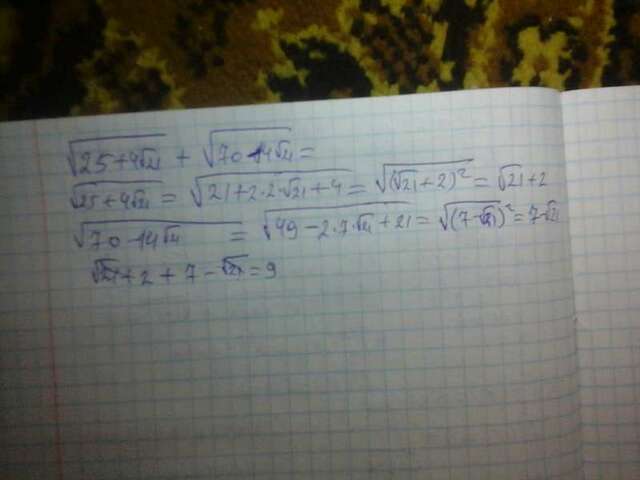 √(25+4√21) + √(70-14√21) =
√(25+4√21) = √(21+2·2·√21+4) = √((√21+2)²) = √21+2
√(70-14√21) = √(49-2·7·√21+21) = √((7-√21)²) = 7-√21
√21+2+7-√21=9